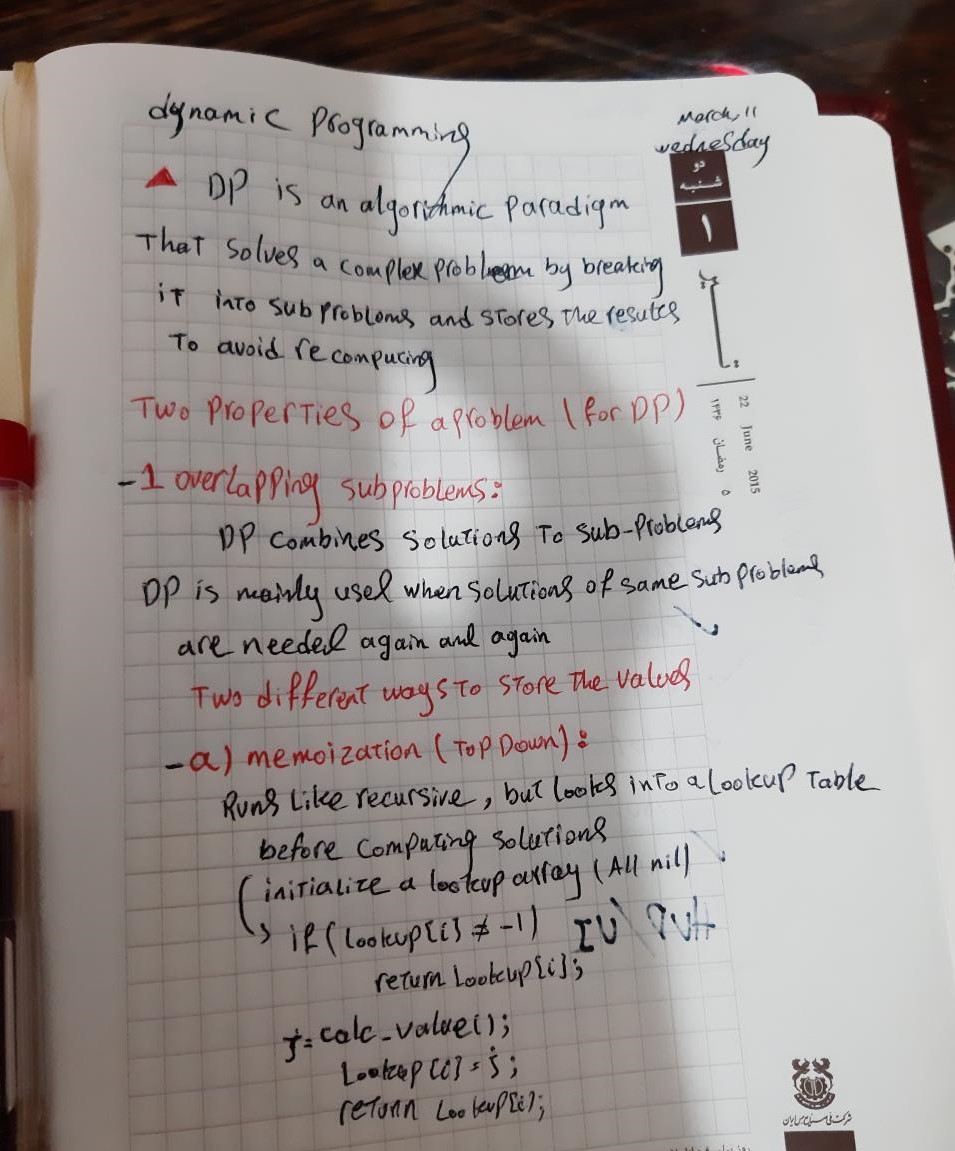 dynamic Programming
March, 11
wednesday
دو
شنبه
۱
تیر
22 June 2015
۱۴۳۶ رمضان ۵
DP is an algorithmic Paradigm
That solves a complex problem by breaking
it into subproblems and stores the results
To avoid recomputing
Two properties of a problem (for DP)
-1 overlapping subproblems:
DP combines solutions To sub-Problems
DP is mainly used when solutions of same subproblems
are needed again and again
Two different ways To store The values
-a) memoization (Top Down):
Runs Like recursive, but looks into a Lookup Table
before computing solutions
initialize a lookup array (All nil)
if (lookup[i] ≠ -1)
return Lookup[i];
j= calc_value();
Lookup[i] = j;
return Lookup[i];
شرکت ملی صنایع مس ایران